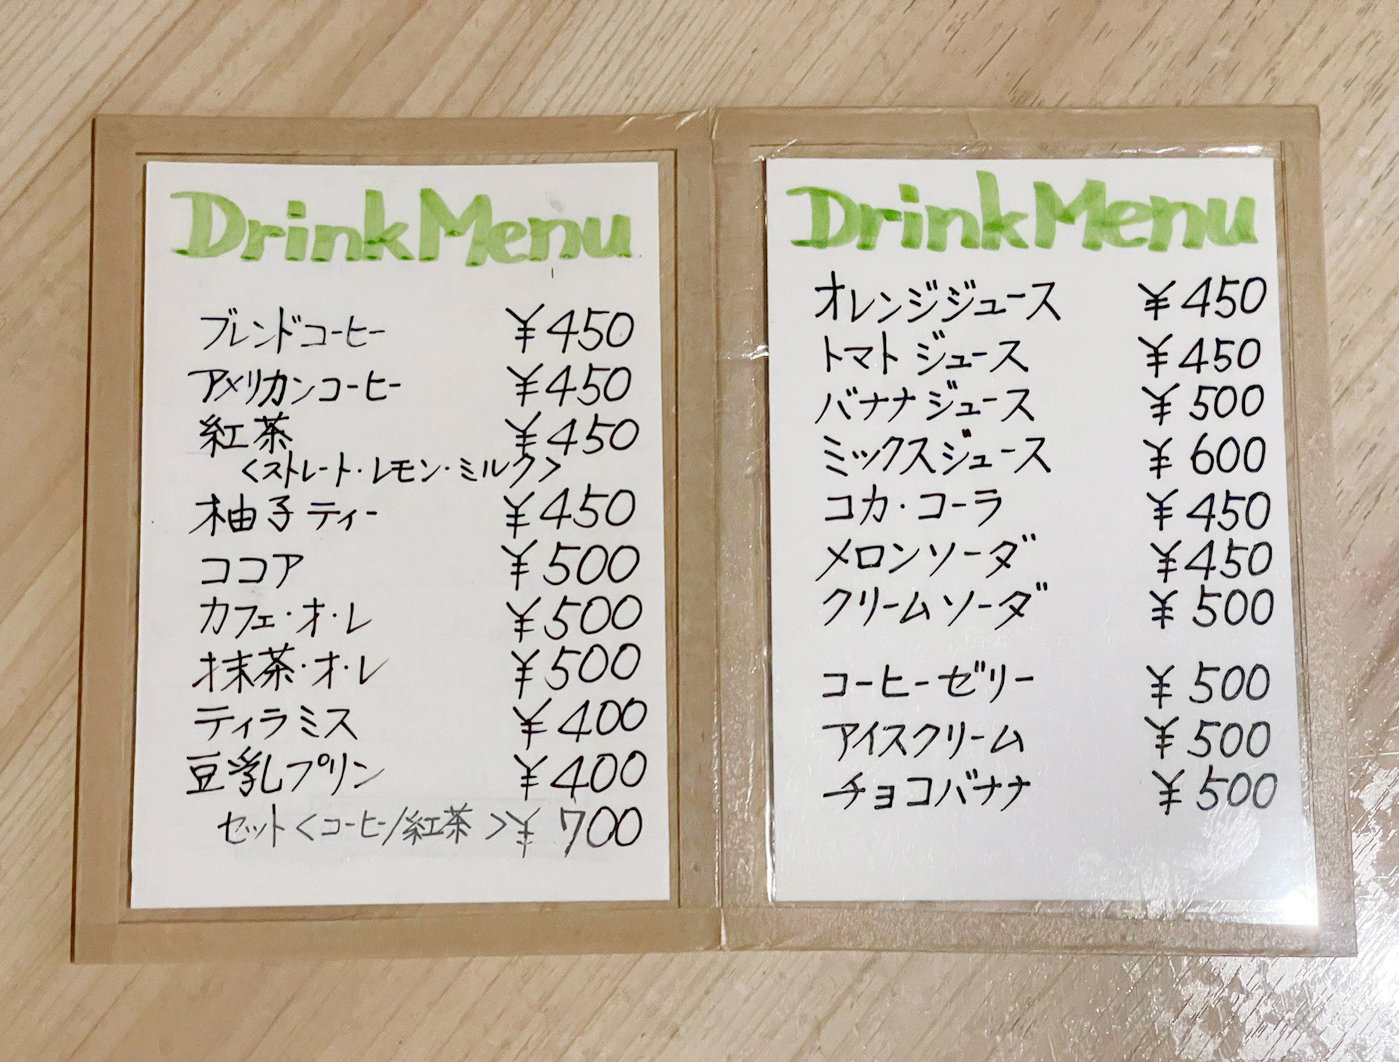 Drink Menu
ブレンドコーヒー ¥450
アメリカンコーヒー ¥450
紅茶 ¥450
<ストレート・レモン・ミルク>
柚子ティー ¥450
ココア ¥500
カフェ・オ・レ ¥500
抹茶・オ・レ ¥500
ティラミス ¥400
豆乳プリン ¥400
セット<コーヒー/紅茶> ¥700
Drink Menu
オレンジジュース ¥450
トマトジュース ¥450
バナナジュース ¥500
ミックスジュース ¥600
コカ・コーラ ¥450
メロンソーダ ¥450
クリームソーダ ¥500
コーヒーゼリー ¥500
アイスクリーム ¥500
チョコバナナ ¥500